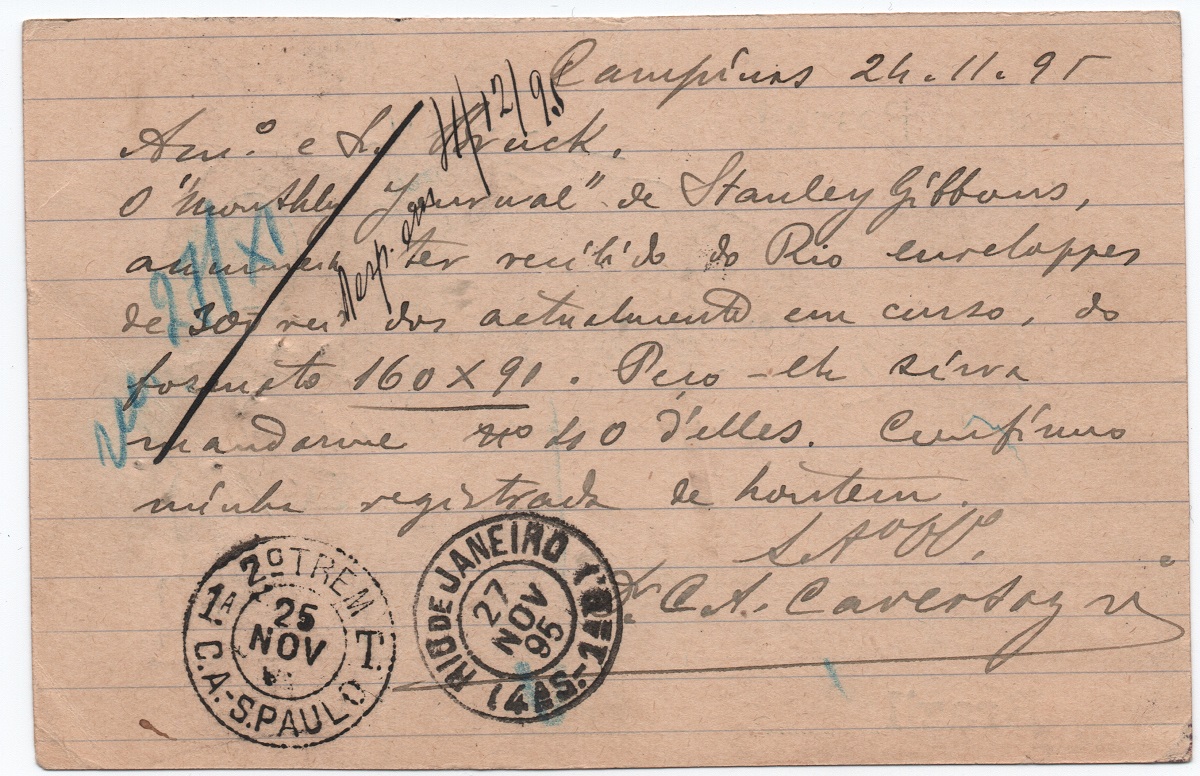 Campinas 24.11.95
Am.º e S. Kruck.
O "Monthly Journal" de Stanley Gibbons,
annuncia ter recebido do Rio enveloppes
de 300 reis dos actualmente em curso, do
formato 160 X 91. Peço-lhe sirva
mandarme 40 d'elles. Confirmo
minha registrada de hontem.
Dr. C. A.
Resp. em 12/95
27/XI
2º TREM
1ª T.
25
NOV
C.A.-S.PAULO
RIO DE JANEIRO
27
NOV
95